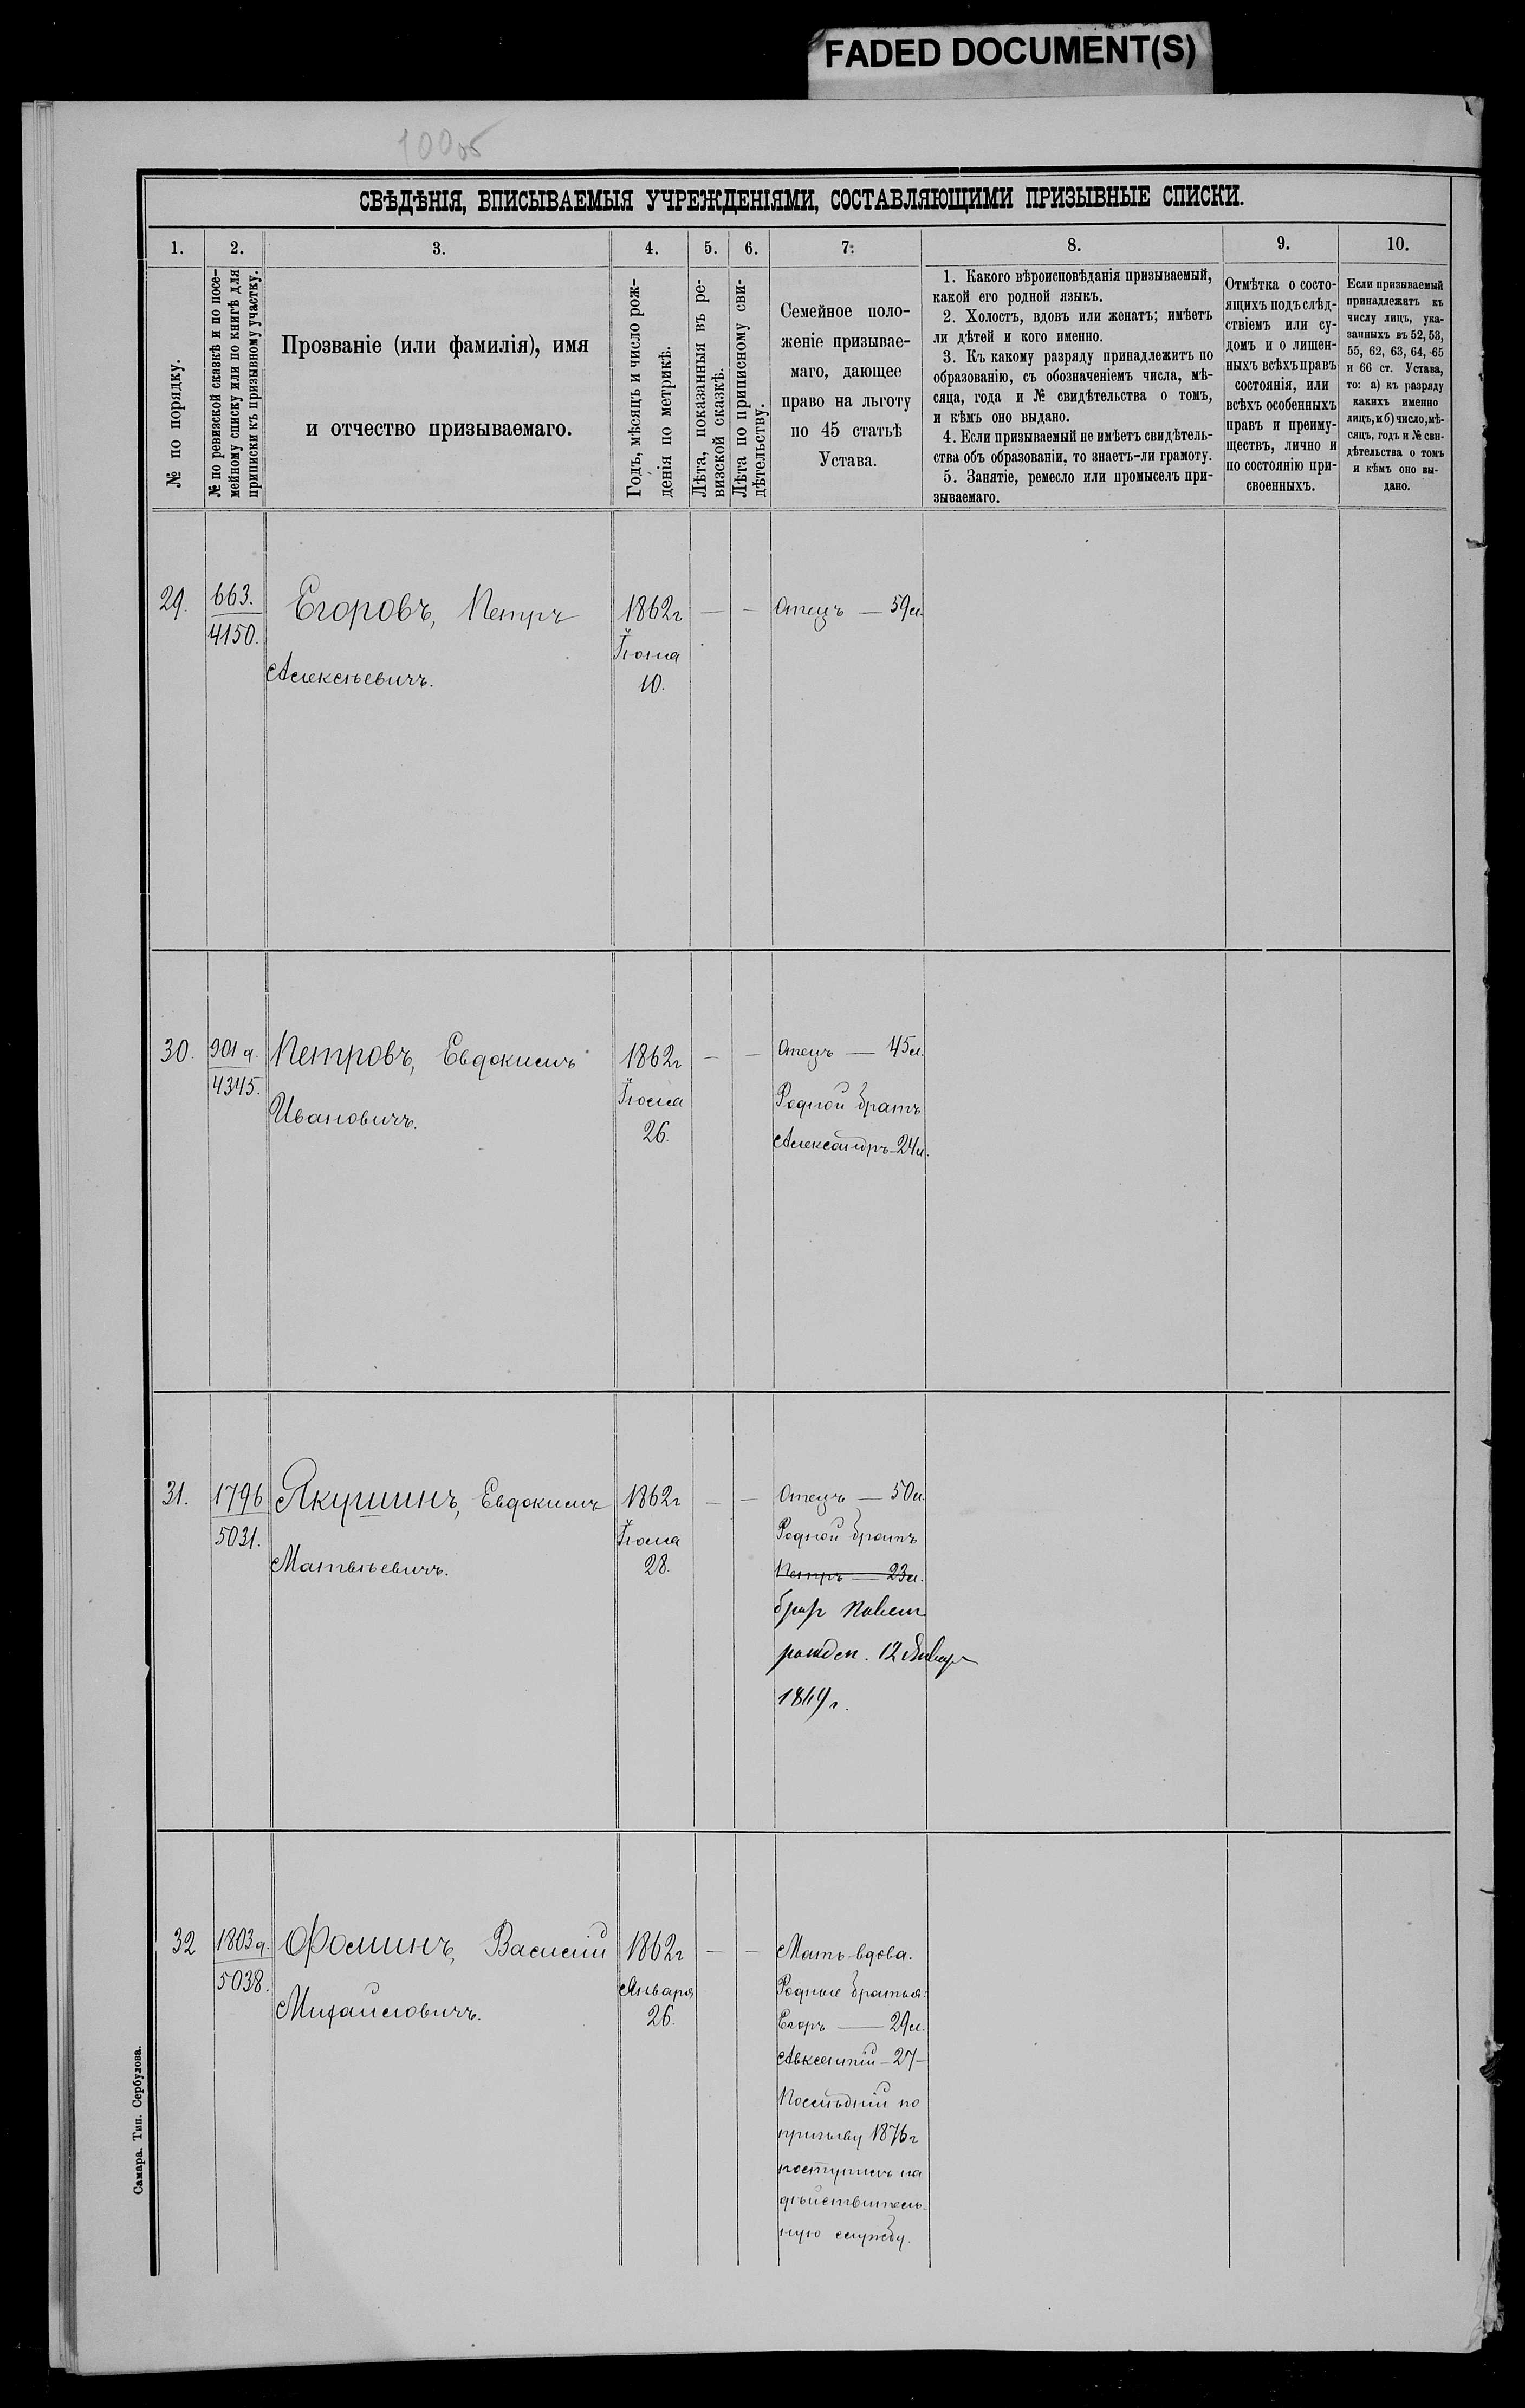 FADED DOCUMENT(S)
100об
СВѢДѢНІЯ, ВПИСЫВАЕМЫЯ УЧРЕЖДЕНІЯМИ, СОСТАВЛЯЮЩИМИ ПРИЗЫВНЫЕ СПИСКИ.
1.
2.
3.
4.
5.
6.
7.
8.
9.
10.
№ по порядку.
№ по ревизской сказкѣ и по посе-
мейному списку или по книгѣ для
приписки къ призывному участку.
Прозваніе (или фамилія), имя
и отчество призываемаго.
Годъ, мѣсяцъ и число рож-
денія по метрикѣ.
Лѣта, показанныя въ ре-
визской сказкѣ.
Лѣта по приписному сви-
дѣтельству.
Семейное поло-
женіе призывае-
маго, дающее
право на льготу
по 45 статьѣ
Устава.
1. Какого вѣроисповѣданія призываемый,
какой его родной языкъ.
2. Холостъ, вдовъ или женатъ; имѣетъ
ли дѣтей и кого именно.
3. Къ какому разряду принадлежитъ по
образованію, съ обозначеніемъ числа, мѣ-
сяца, года и № свидѣтельства о томъ,
и кѣмъ оно выдано.
4. Если призываемый не имѣетъ свидѣтель-
ства объ образованіи, то знаетъ-ли грамоту.
5. Занятіе, ремесло или промыселъ при-
зываемаго.
Отмѣтка о состо-
ящихъ подъ слѣд-
ствіемъ или су-
домъ и о лишен-
ныхъ всѣхъ правъ
состоянія, или
всѣхъ особенныхъ
правъ и преиму-
ществъ, лично и
по состоянію при-
своенныхъ.
Если призываемый
принадлежитъ къ
числу лицъ, ука-
занныхъ въ 52, 53,
55, 62, 63, 64, 65
и 66 ст. Устава,
то: а) къ разряду
какихъ именно
лицъ, и б) число, мѣ-
сяцъ, годъ и № сви-
дѣтельства о томъ
и кѣмъ оно вы-
дано.
29.
663.
4150.
Егоровъ, Петръ
Алексѣевичъ.
1862г
Іюня
10.
— —
Отецъ — 59л.
30.
901 а.
4345.
Петровъ, Евдокимъ
Ивановичъ.
1862г
Іюля
26.
— —
Отецъ — 45л.
Родной братъ
Александръ-24л.
31.
1796
5031.
Якушинъ, Евдокимъ
Матвѣевичъ.
1862г
Іюля
28.
— —
Отецъ — 50л.
Родной братъ
Петръ — 23л.
братъ Павелъ
рожден. 12 Январ
32
1803 а.
5038.
Ѳоминъ, Василій
Михайловичъ.
1862г
Января
26.
— —
Мать-вдова.
Родные братья:
Егоръ — 29л.
Авксентій - 27 -
Послѣдній по
призыву 1876г
поступилъ на
дѣйствитель-
ную службу.
Самара. Тип. Сербулова.